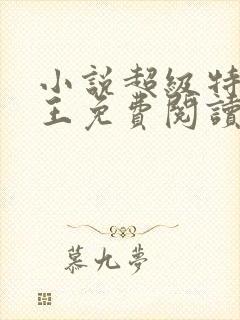 小說超級特
王免費閱讀
慕九夢